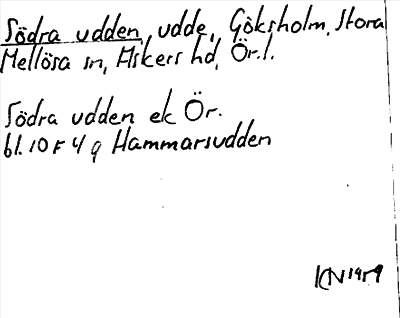 Södra udden, udde, Göksholm, Stora
Mellösa sn, Askers hd, Ör.l.
Södra udden ek Ör.
bl. 10 F 4 g Hammarsudden
KN 1959